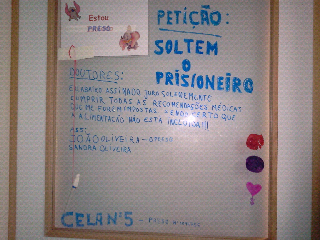 Estou
PRESO:
PETIÇÃO:
SOLTEM
O
PRISIONEIRO
DOUTORES:
EU ABAIXO ASSINADO JURO SOLENEMENTE
CUMPRIR TODAS AS RECOMENDAÇÕES MÉDICAS
QUE ME FOREM IMPOSTAS
QUE
A ALIMENTAÇÃO NÃO ESTÁ INCLUÍDA!!!
ASS:
JOÃO OLIVEIRA -
SANDRA OLIVEIRA
CELA Nº 5 -